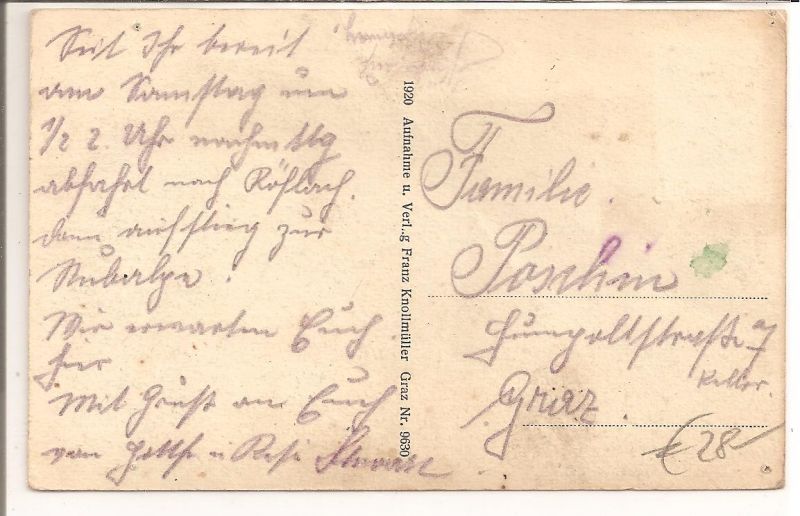 Seit Ihr bereit
am Samstag um
1/2 2. Uhr nachmttg
abfahrt nach Köflach.
dann aufstieg zur
Stubalpe.
Wir erwarten Euch
hier
Mit Gruß an Euch
von u Resi
1920 Aufnahme u. Verl..g Franz Knollmüller Graz Nr. 9630
Familie.
Poschin
Humpoltstraße 7
Keller.
Graz.
€ 28